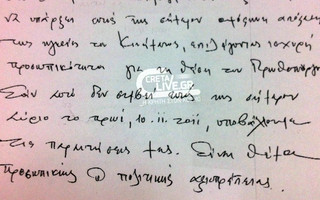 να υπάρξει από της σήμερον επίσημη απόφαση
της ηγεσίας του Κινήματος, επιλέγοντας ισχυρή
προσωπικότητα για τη θέση του Πρωθυπουργού
Εάν αυτό δεν συμβεί από της σήμερον
αύριο το πρωί, 10.11.2011, υποβάλλουμε
τις παραιτήσεις μας. Είναι θέμα
προσωπικής & πολιτικής αξιοπρέπειας.
CRETA
LIVE.GR